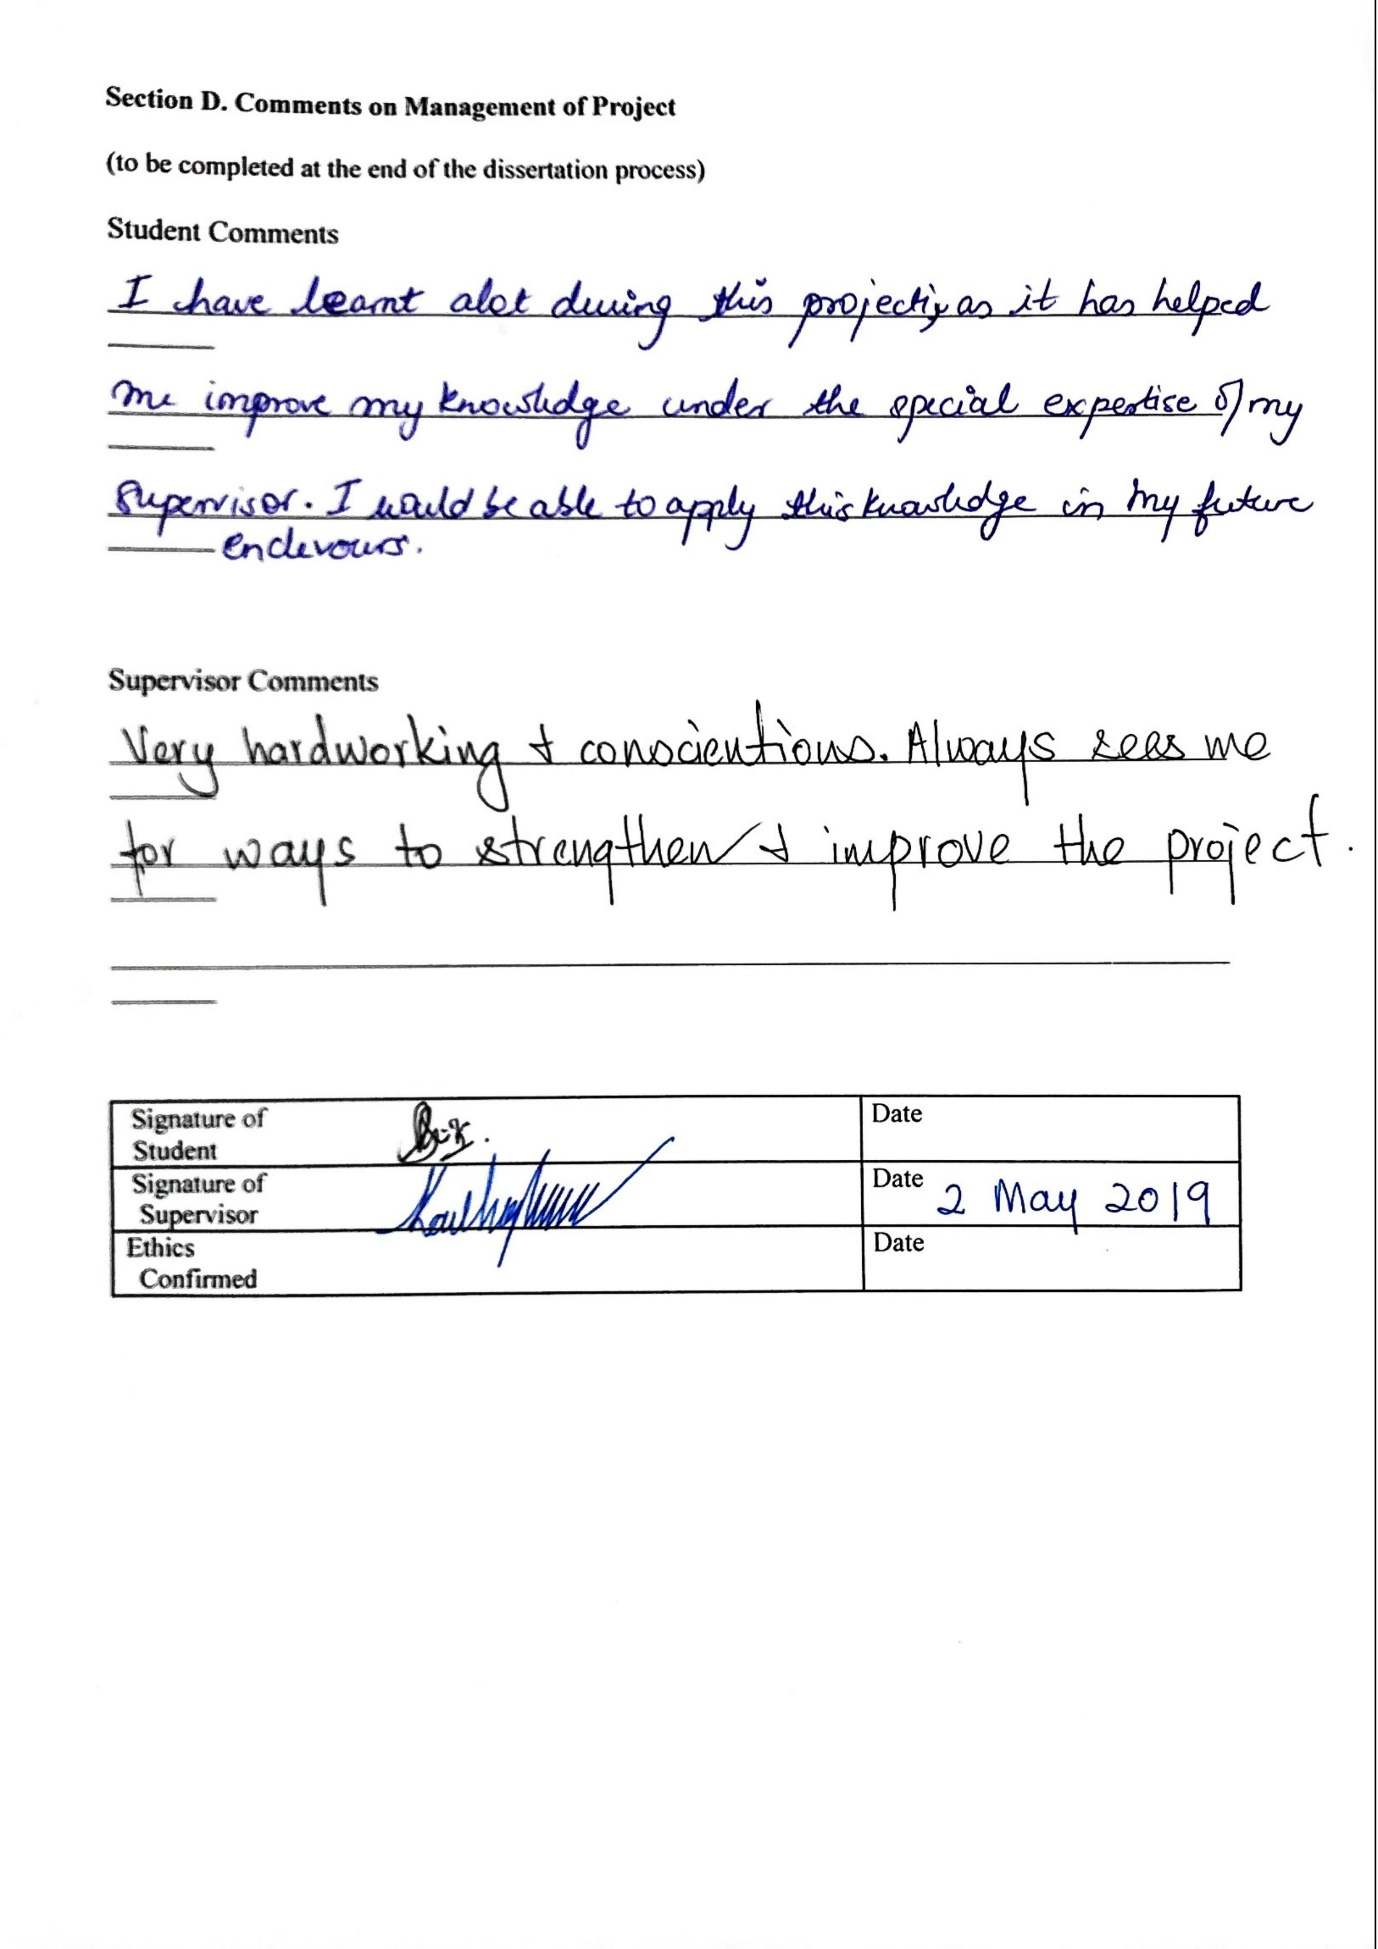 Section D. Comments on Management of Project
(to be completed at the end of the dissertation process)
Student Comments
I have learnt alot during this project, as it has helped
me improve my knowledge under the special expertise of my
Supervisor. I would be able to apply this knowledge in my future
endevours.
Supervisor Comments
Very hardworking & conscientious. Always sees me
for ways to strengthen & improve the project.
Signature of
Student
Date
Signature of
Supervisor
Date 2 May 2019
Ethics
Confirmed
Date